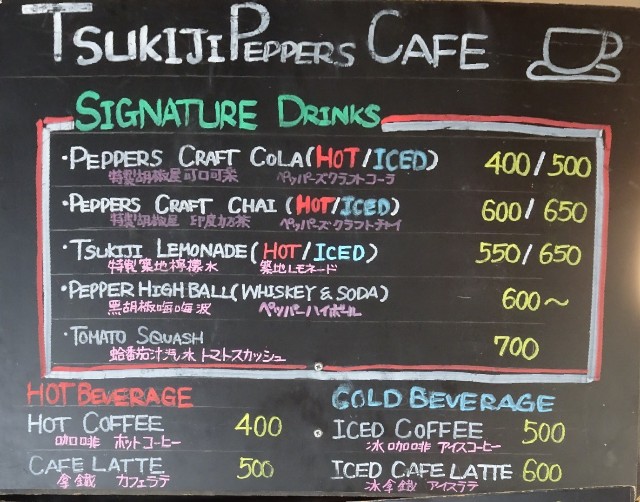 TSUKIJI PEPPERS CAFE
SIGNATURE DRINKS
・PEPPERS CRAFT COLA (HOT/ICED) 400/500
特製胡椒屋可口可樂 ペッパーズクラフトコーラ
・PEPPERS CRAFT CHAI (HOT/ICED) 600/650
特製胡椒屋 印度奶茶 ペッパーズクラフトチャイ
・TSUKIJI LEMONADE (HOT/ICED) 550/650
特製築地檸檬水 築地レモネード
・PEPPER HIGH BALL (WHISKEY & SODA) 600〜
黑胡椒嗨嗨波 ペッパーハイボール
・TOMATO SQUASH 700
蕃茄汁汽水 トマトスカッシュ
HOT BEVERAGE
HOT COFFEE 400
咖啡 ホットコーヒー
CAFE LATTE 500
拿鐵 カフェラテ
COLD BEVERAGE
ICED COFFEE 500
冰咖啡 アイスコーヒー
ICED CAFE LATTE 600
冰拿鐵 アイスラテ